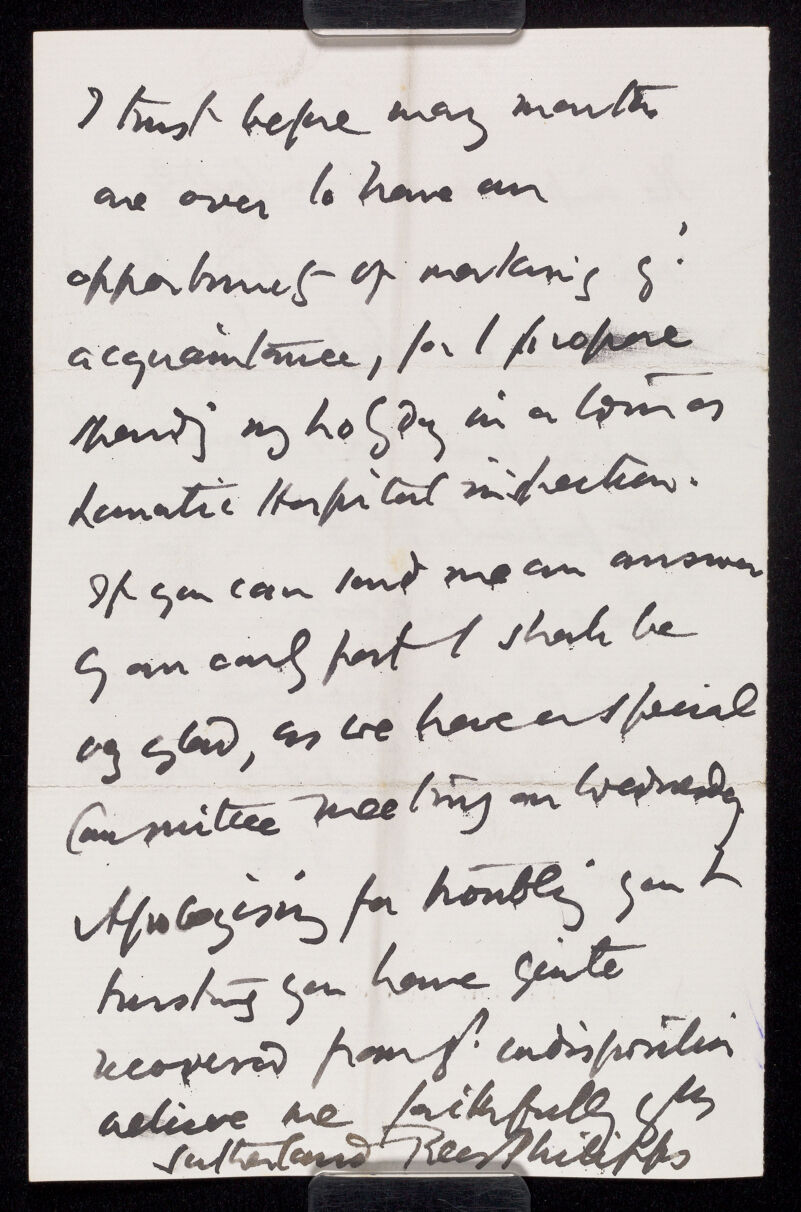 I trust before many months
are over to have an
opportunity of making yr
acquaintance, for I propose
spendg my holyday in a
Lunatic Hospital inspection.
If you can send me an answer
by an early post I shall be
vy glad, as we have a special
Committee meeting on Wednesday
Apologising for troublg you &
trusting you have quite
recovered from yr indisposition
believe me faithfully yrs
Sutherland Rees Philipps